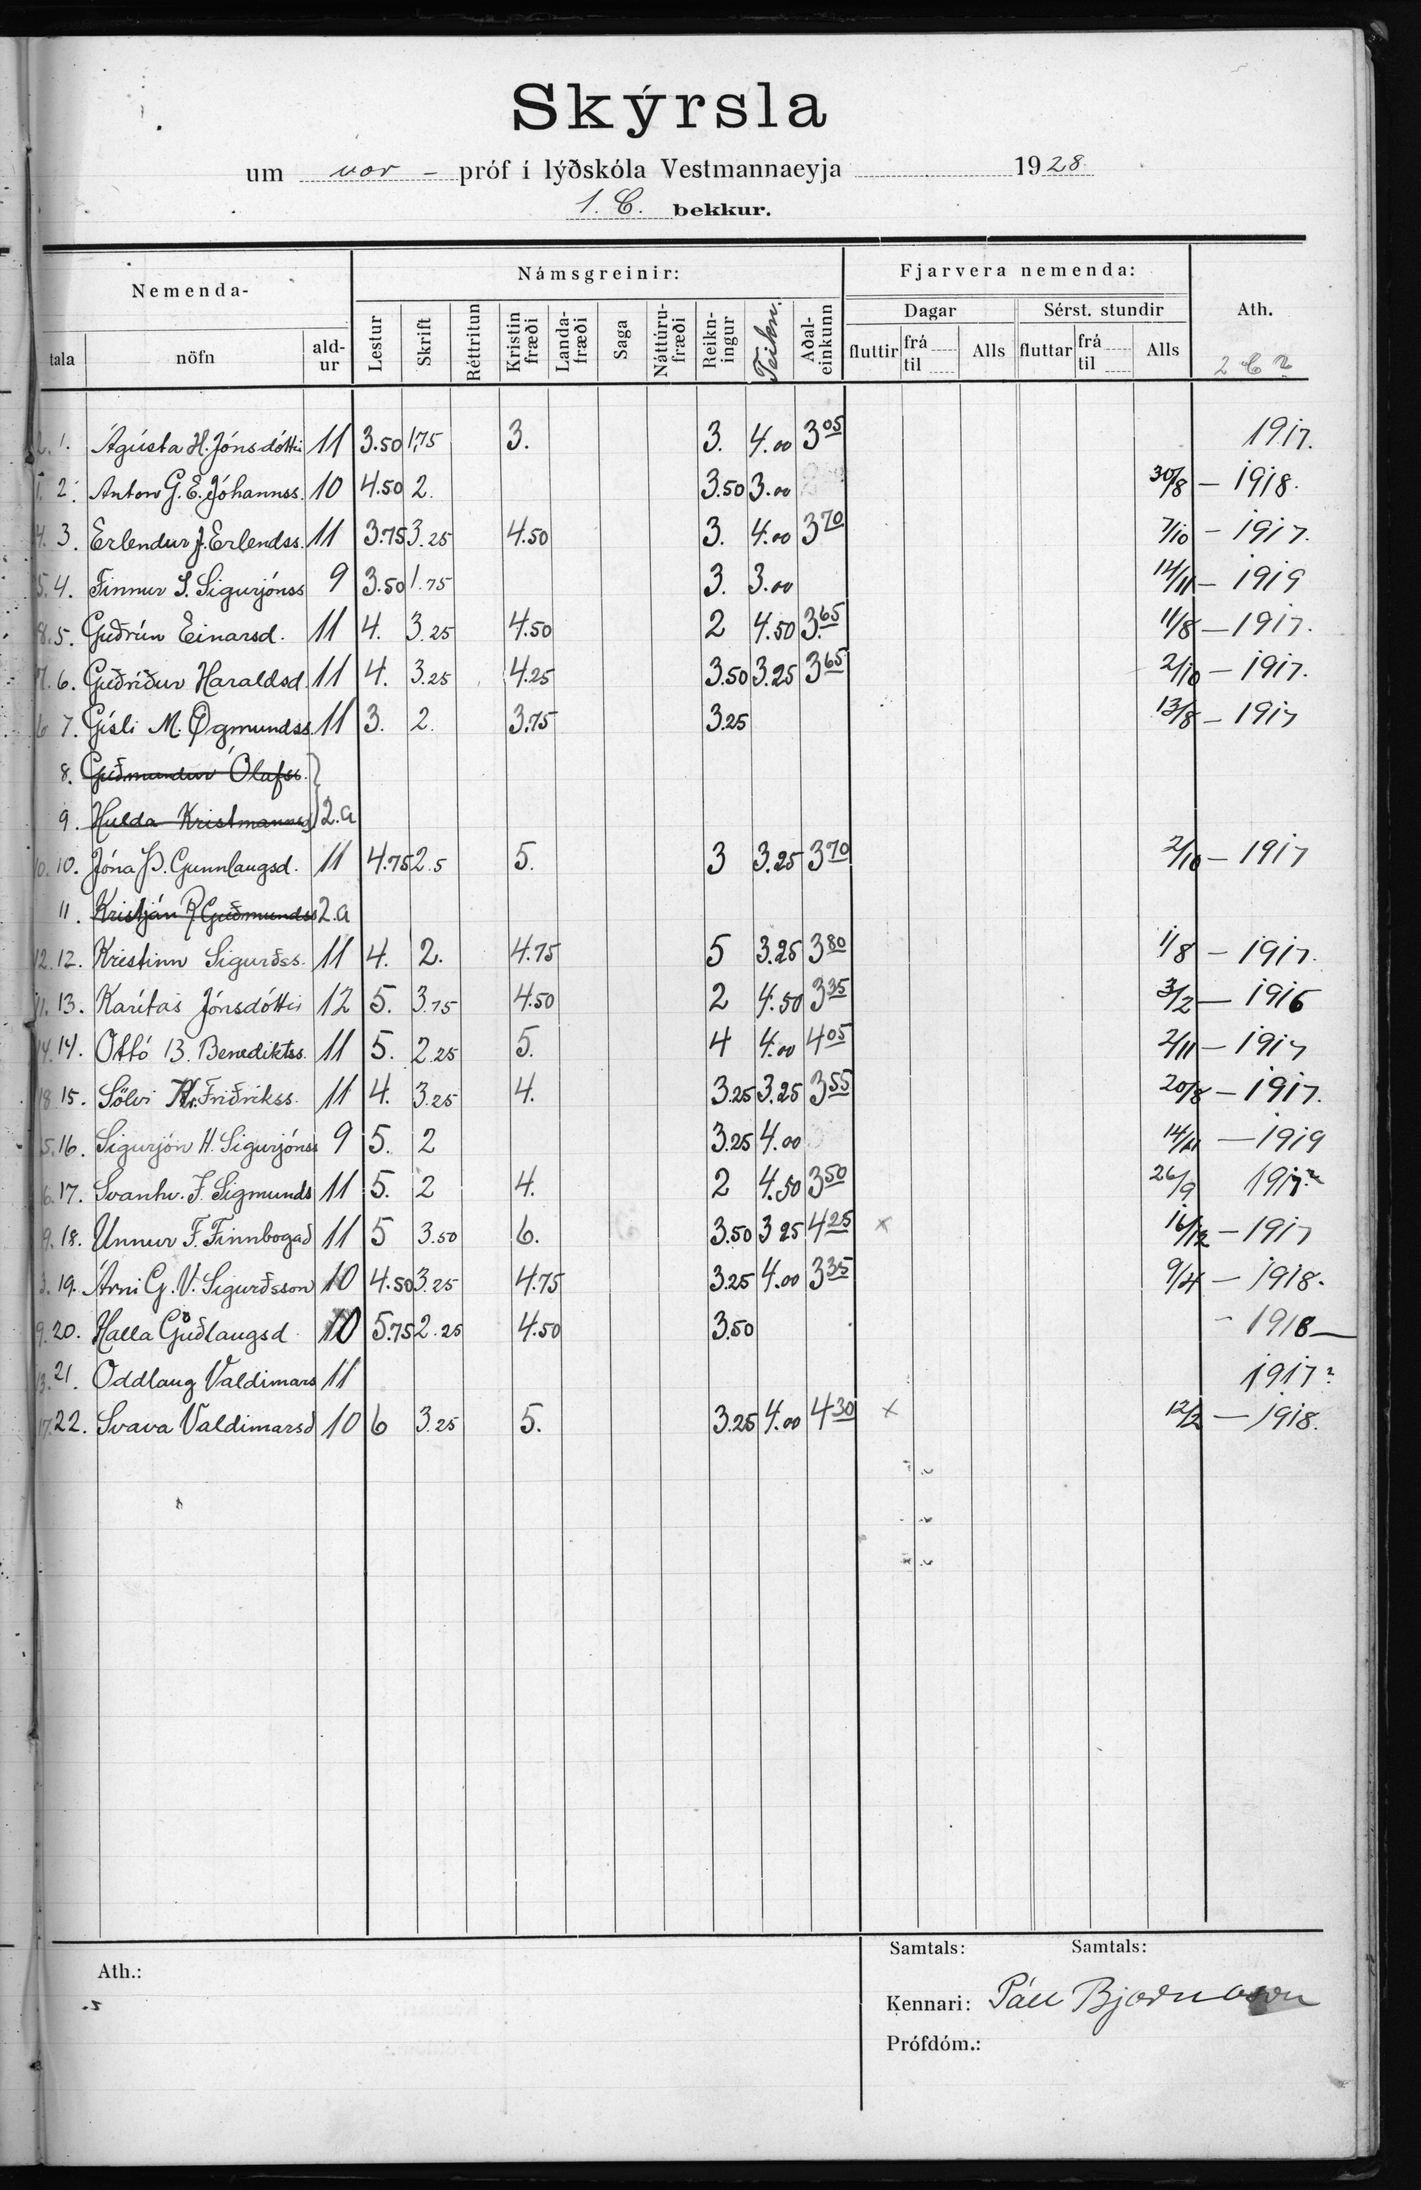 Skýrsla
um vor - próf í lýðskóla Vestmannaeyja 1928
1. C. bekkur.
Nemenda- Námsgreinir: Fjarvera nemenda: Ath.
tala nöfn ald-ur Lestur Skrift Réttritun Kristin fræði Landa-fræði Saga Náttúru-fræði Reikn-ingur Teikn. Aðal-einkunn Dagar fluttir frá til Alls Sérst. stundir fluttar frá til Alls 2 C ?
2. 1. Ágústa H. Jónsdóttir 11 3.50 1.75 3. 3. 4.00 3.05 1917.
1. 2. Anton G. E. Jóhannss. 10 4.50 2. 3.50 3.00 30/8 - 1918.
4. 3. Erlendur J. Erlendss. 11 3.75 3.25 4.50 3. 4.00 3.70 7/10 - 1917.
5. 4. Finnur S. Sigurjónss 9 3.50 1.75 3. 3.00 14/11 - 1919
8. 5. Guðrún Einarsd. 11 4. 3.25 4.50 2 4.50 3.65 11/8 - 1917.
7. 6. Guðríður Haraldsd. 11 4. 3.25 4.25 3.50 3.25 3.65 2/10 - 1917.
6 7. Gísli M. Ögmundss. 11 3. 2. 3.75 3.25 13/8 - 1917
8. Guðmundur Ólafss.
9. Hulda Kristmannsd 2.a
10. 10. Jóna Þ. Gunnlaugsd. 11 4.75 2.5 5. 3 3.25 3.70 2/10 - 1917
11. Kristján R Guðmundss 2.a
12. 12. Kristinn Sigurðss. 11 4. 2. 4.75 5 3.25 3.80 1/8 - 1917.
11. 13. Karítas Jónsdóttir 12 5. 3.75 4.50 2 4.50 3.35 3/2 - 1916
14. 14. Ottó B. Benediktss. 11 5. 2.25 5. 4 4.00 4.05 2/11 - 1917
18 15. Sölvi Kr. Friðrikss. 11 4. 3.25 4. 3.25 3.25 3.55 20/8 - 1917.
15. 16. Sigurjón H. Sigurjónss 9 5. 2 3.25 4.00 14/11 - 1919
16. 17. Svanhv. F. Sigmunds 11 5. 2 4. 2 4.50 3.50 26/9 1917?
19. 18. Unnur F. Finnbogad 11 5 3.50 6. 3.50 3 25 4.25 x 16/12 - 1917
3. 19. Árni G. V. Sigurðsson 10 4.50 3.25 4.75 3.25 4.00 3.35 9/4 - 1918.
9. 20. Halla Guðlaugsd 10 5.75 2.25 4.50 3.50 - 1918
13. 21. Oddlaug Valdimars 11 1917?
17. 22. Svava Valdimarsd 10 6 3.25 5. 3.25 4.00 4.30 x 12/2 - 1918.
Samtals: Samtals:
Ath.:
Kennari: Páll Bjarnason
Prófdóm.: